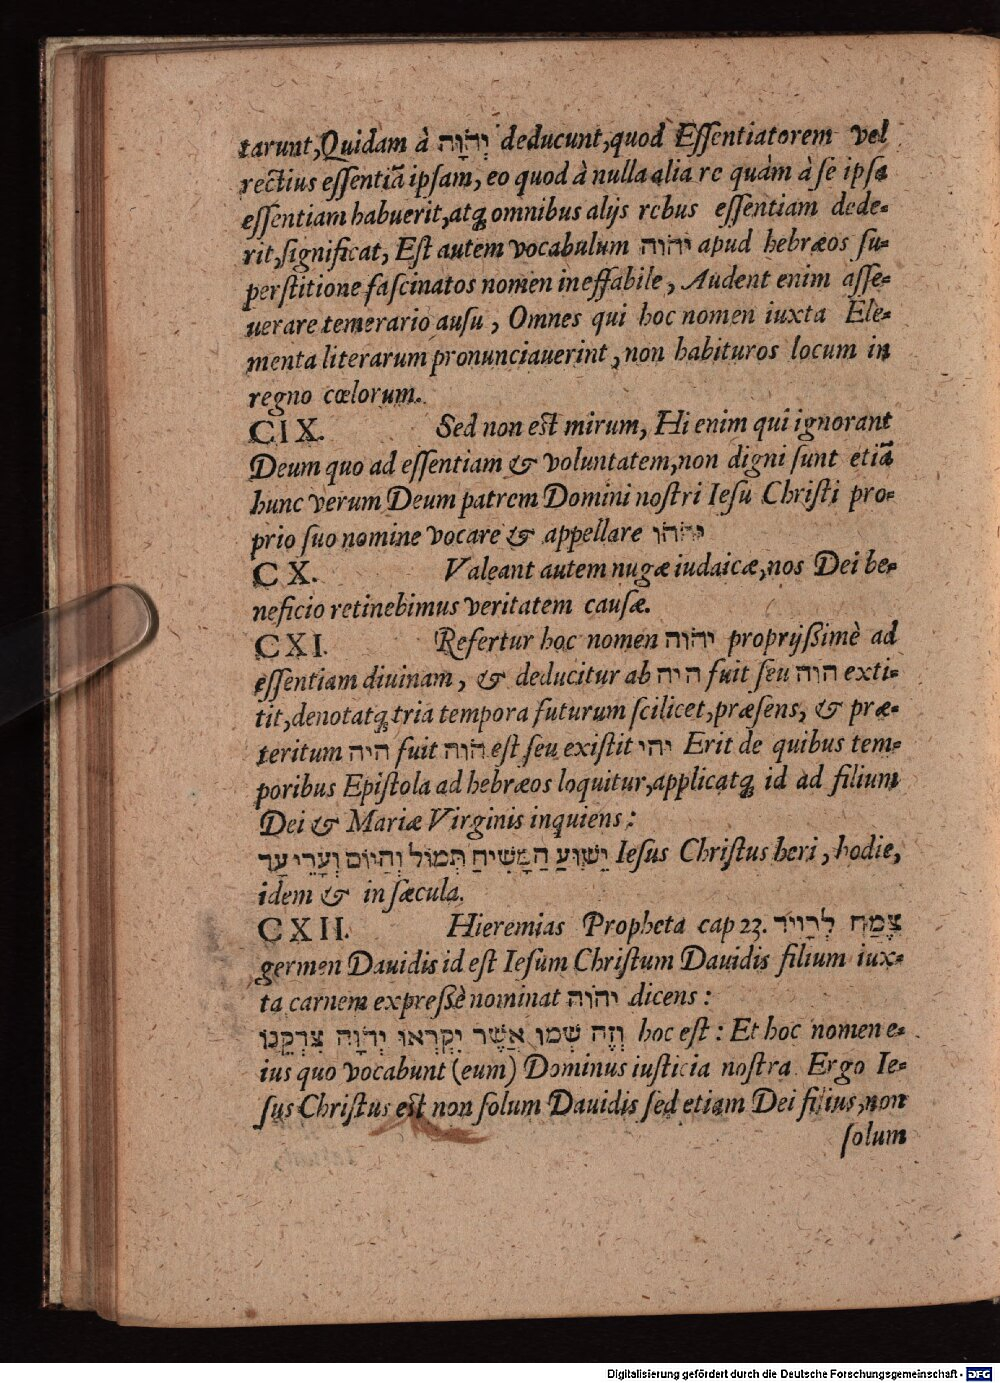 tarunt, Quidam à יְהֹוָה deducunt, quod Essentiatorem vel
rectius essentiã ipsam, eo quod à nulla alia re quàm à se ipsa
essentiam habuerit, atq; omnibus alijs rebus essentiam dede-
rit, significat, Est autem vocabulum יהוה apud hebræos su-
perstitione fascinatos nomen ineffabile, Audent enim asse-
uerare temerario ausu, Omnes qui hoc nomen iuxta Ele-
menta literarum pronunciauerint, non habituros locum in
regno cœlorum.
CIX. Sed non est mirum, Hi enim qui ignorant
Deum quo ad essentiam & voluntatem, non digni sunt etiã
hunc verum Deum patrem Domini nostri Iesu Christi pro-
prio suo nomine vocare & appellare
CX. Valeant autem nugæ iudaicæ, nos Dei be-
neficio retinebimus veritatem causæ.
CXI. Refertur hoc nomen יהוה proprijßimè ad
essentiam diuinam, & deducitur ab היה fuit seu הוה exti-
tit, denotatq; tria tempora futurum scilicet, præsens, & præ-
teritum היה fuit הֹוה est seu existit יהי Erit de quibus tem-
poribus Epistola ad hebræos loquitur, applicatq; id ad filium
Dei & Mariæ Virginis inquiens:
יֵשׁוּעַ הַמָּשִׁיחַ תְּמוֹל וְהַיּוֹם וְעָרֵי עַד Iesus Christus heri, hodie,
idem & in sæcula.
CXII. Hieremias Propheta cap 23. צֶמַח לְדָוִיד
germen Dauidis id est Iesum Christum Dauidis filium iux-
ta carnem expreßè nominat יהוה dicens:
וְזֶה שְׁמוֹ אֲשֶׁר יִקְרְאוּ יְהֹוָה צִדְקֵנוּ hoc est: Et hoc nomen e-
ius quo vocabunt (eum) Dominus iusticia nostra. Ergo Ie-
sus Christus est non solum Dauidis sed etiam Dei filius, non
solum
Digitalisierung gefördert durch die Deutsche Forschungsgemeinschaft - DFG